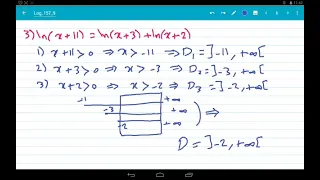 Log.157_9
3) ln(x+11) = ln(x+3)+ln(x+2)
1) x+11>0 ⇒ x>-11 ⇒ D₁ = ]-11, +∞[
2) x+3>0 ⇒ x>-3 ⇒ D₂ = ]-3, +∞[
3) x+2>0 ⇒ x>-2 ⇒ D₃ = ]-2, +∞[
-11 +∞
-3 +∞ ) ⇒
-2 +∞
D = ]-2, +∞[